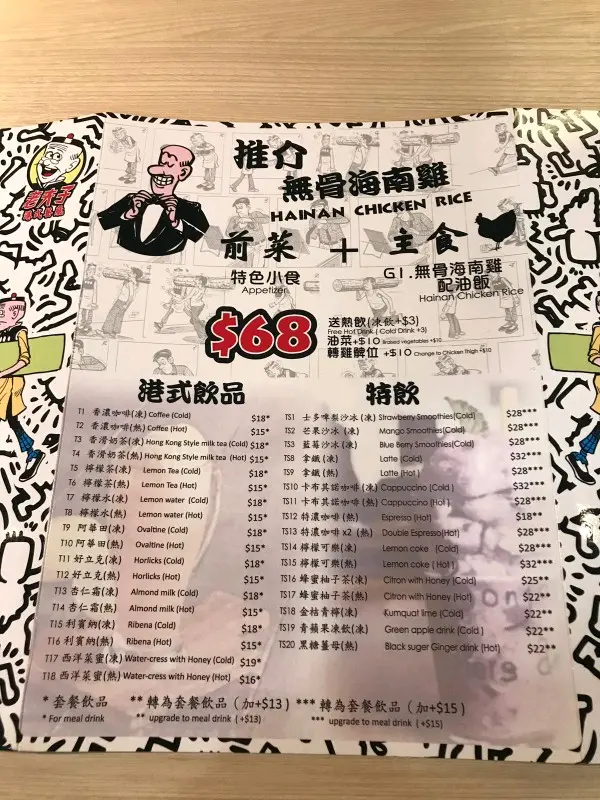 老夫子
推介
無骨海南雞
HAINAN CHICKEN RICE
前菜 + 主食
特色小食
Appetizer
G1.無骨海南雞
配油飯
Hainan Chicken Rice
$68
送熱飲(凍飲+$3)
Free Hot Drink ( Cold Drink +3)
油菜+$10 Braised vegetables +$10
轉雞髀位 +$10 Change to Chicken Thigh +$10
港式飲品
T1 香濃咖啡(凍) Coffee (Cold) $18*
T2 香濃咖啡(熱) Coffee (Hot) $15*
T3 香滑奶茶(凍) Hong Kong Style milk tea (Cold) $18*
T4 香滑奶茶(熱) Hong Kong Style milk tea (Hot) $15*
T5 檸檬茶(凍) Lemon Tea (Cold) $18*
T6 檸檬茶(熱) Lemon Tea (Hot) $15*
T7 檸檬水(凍) Lemon water (Cold) $18*
T8 檸檬水(熱) Lemon water (Hot) $15*
T9 阿華田(凍) Ovaltine (Cold) $18*
T10 阿華田(熱) Ovaltine (Hot) $15*
T11 好立克(凍) Horlicks (Cold) $18*
T12 好立克(熱) Horlicks (Hot) $15*
T13 杏仁霜(凍) Almond milk (Cold) $18*
T14 杏仁霜(熱) Almond milk (Hot) $15*
T15 利賓納(凍) Ribena (Cold) $18*
T16 利賓納(熱) Ribena (Hot) $15*
T17 西洋菜蜜(凍) Water-cress with Honey (Cold) $19*
T18 西洋菜蜜(熱) Water-cress with Honey (Hot) $16*
特飲
TS1 士多啤梨沙冰 (凍) Strawberry Smoothies(Cold) $28***
TS2 芒果沙冰 (凍) Mango Smoothies(Cold) $28***
TS3 藍莓沙冰 (凍) Blue Berry Smoothies(Cold) $28***
TS8 拿鐵(凍) Latte (Cold) $32***
TS9 拿鐵(熱) Latte (Hot) $28***
TS10 卡布其諾咖啡(凍) Cappuccino (Cold) $32***
TS11 卡布其諾咖啡(熱) Cappuccino (Hot) $28***
TS12 特濃咖啡(熱) Espresso (Hot) $18**
TS13 特濃咖啡 x2 (熱) Double Espresso(Hot) $28***
TS14 檸檬可樂(凍) Lemon coke (Cold) $28***
TS15 檸檬可樂(熱) Lemon coke ( Hot) $32***
TS16 蜂蜜柚子茶(凍) Citron with Honey(Cold) $25**
TS17 蜂蜜柚子茶(熱) Citron with Honey(Hot) $22**
TS18 金桔青檸(凍) Kumquat lime (Cold) $22**
TS19 青蘋果凍飲(凍) Green apple drink (Cold) $22**
TS20 黑糖薑母(熱) Black suger Ginger drink (Hot) $22**
* 套餐飲品 ** 轉為套餐飲品 (加+$13) *** 轉為套餐飲品 (加+$15)
* For meal drink ** upgrade to meal drink (+$13) *** upgrade to meal drink (+$15)